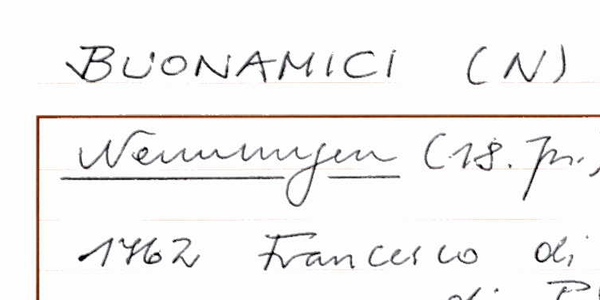 BUONAMICI (N)
Nennungen (18. Jh.)
1762 Francesco di
di